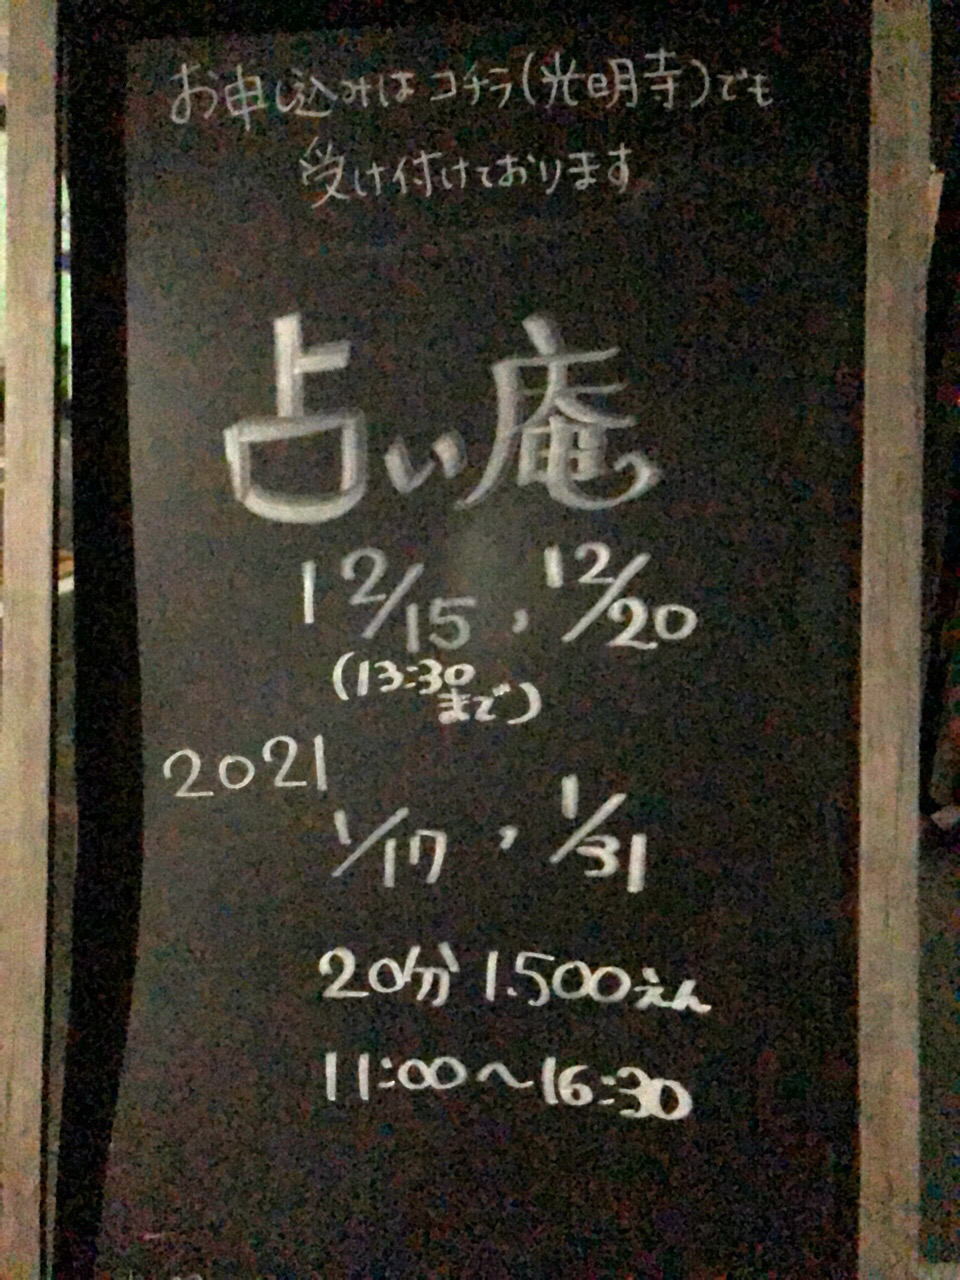 お申し込みはコチラ(光明寺)でも
受け付けております
占い庵
12/15, 12/20
(13:30
まで)
2021
1/17, 1/31
20分 1.500えん
11:00〜16:30